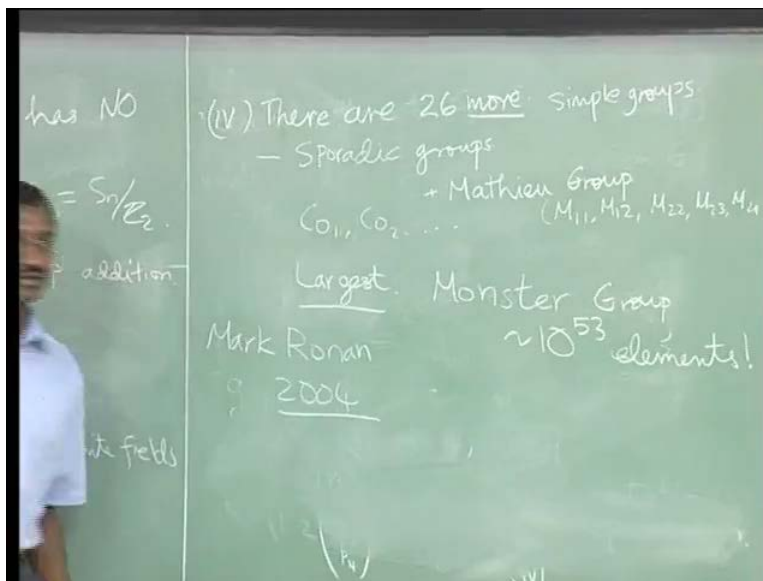 has NO
= Sn/Z2.
addition.
fields
(IV) There are 26 more simple groups
- Sporadic groups
+ Mathieu Group
Co1, Co2 ....
(M11, M12, M22, M23, M24
Largest. Monster Group
~10^53 elements!
Mark Ronan
2004